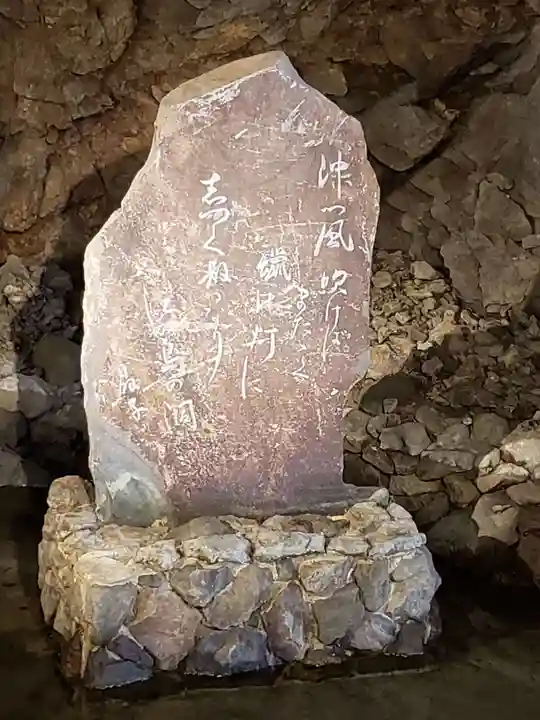 沖つ風吹けば
またゝく
蝋の灯に
志づく散るなり
江の島の洞
晶子